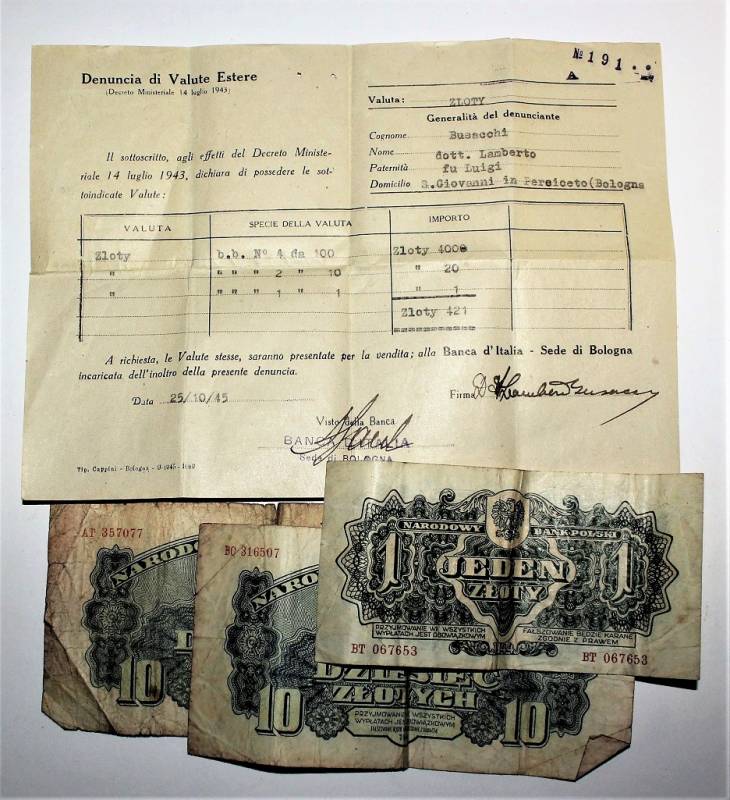 Nº 191..
A
Denuncia di Valute Estere
(Decreto Ministeriale 14 luglio 1943)
Valuta: ZLOTY
Generalità del denunciante
Cognome Busacchi
Nome dott. Lamberto
Paternità fu Luigi
Domicilio S.Giovanni in Persiceto(Bologna
Il sottoscritto, agli effetti del Decreto Ministe-
riale 14 luglio 1943, dichiara di possedere le sot-
toindicate Valute:
VALUTA SPECIE DELLA VALUTA IMPORTO
Zloty b.b. Nº 4 da 100 Zloty 400
" " " " 2 " 10 " 20
" " " " 1 " 1 " 1
Zloty 421
A richiesta, le Valute stesse, saranno presentate per la vendita; alla Banca d'Italia - Sede di Bologna
incaricata dell'inoltro della presente denuncia.
Data 25/10/45
Firma
Visto della Banca
BANCA D'ITALIA
Sede di BOLOGNA
Tip. Cappini - Bologna -
AT 357077
BC 316507
NARODOWY BANK POLSKI
1 JEDEN 1
ZŁOTY
PRZYJMOWANIE WE WSZYSTKICH
WYPŁATACH JEST OBOWIĄZKOWYM
FAŁSZOWANIE BĘDZIE KARANE
ZGODNIE Z PRAWEM
BT 067653 BT 067653
NARODO
NARODO
10 DZIESIĘĆ 10
ZŁOTYCH
PRZYJMOWANIE WE WSZYSTKICH
WYPŁATACH JEST OBOWIĄZKOWYM
10